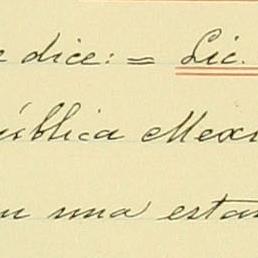 e dice: = Lic.
ública Mexi
una esta